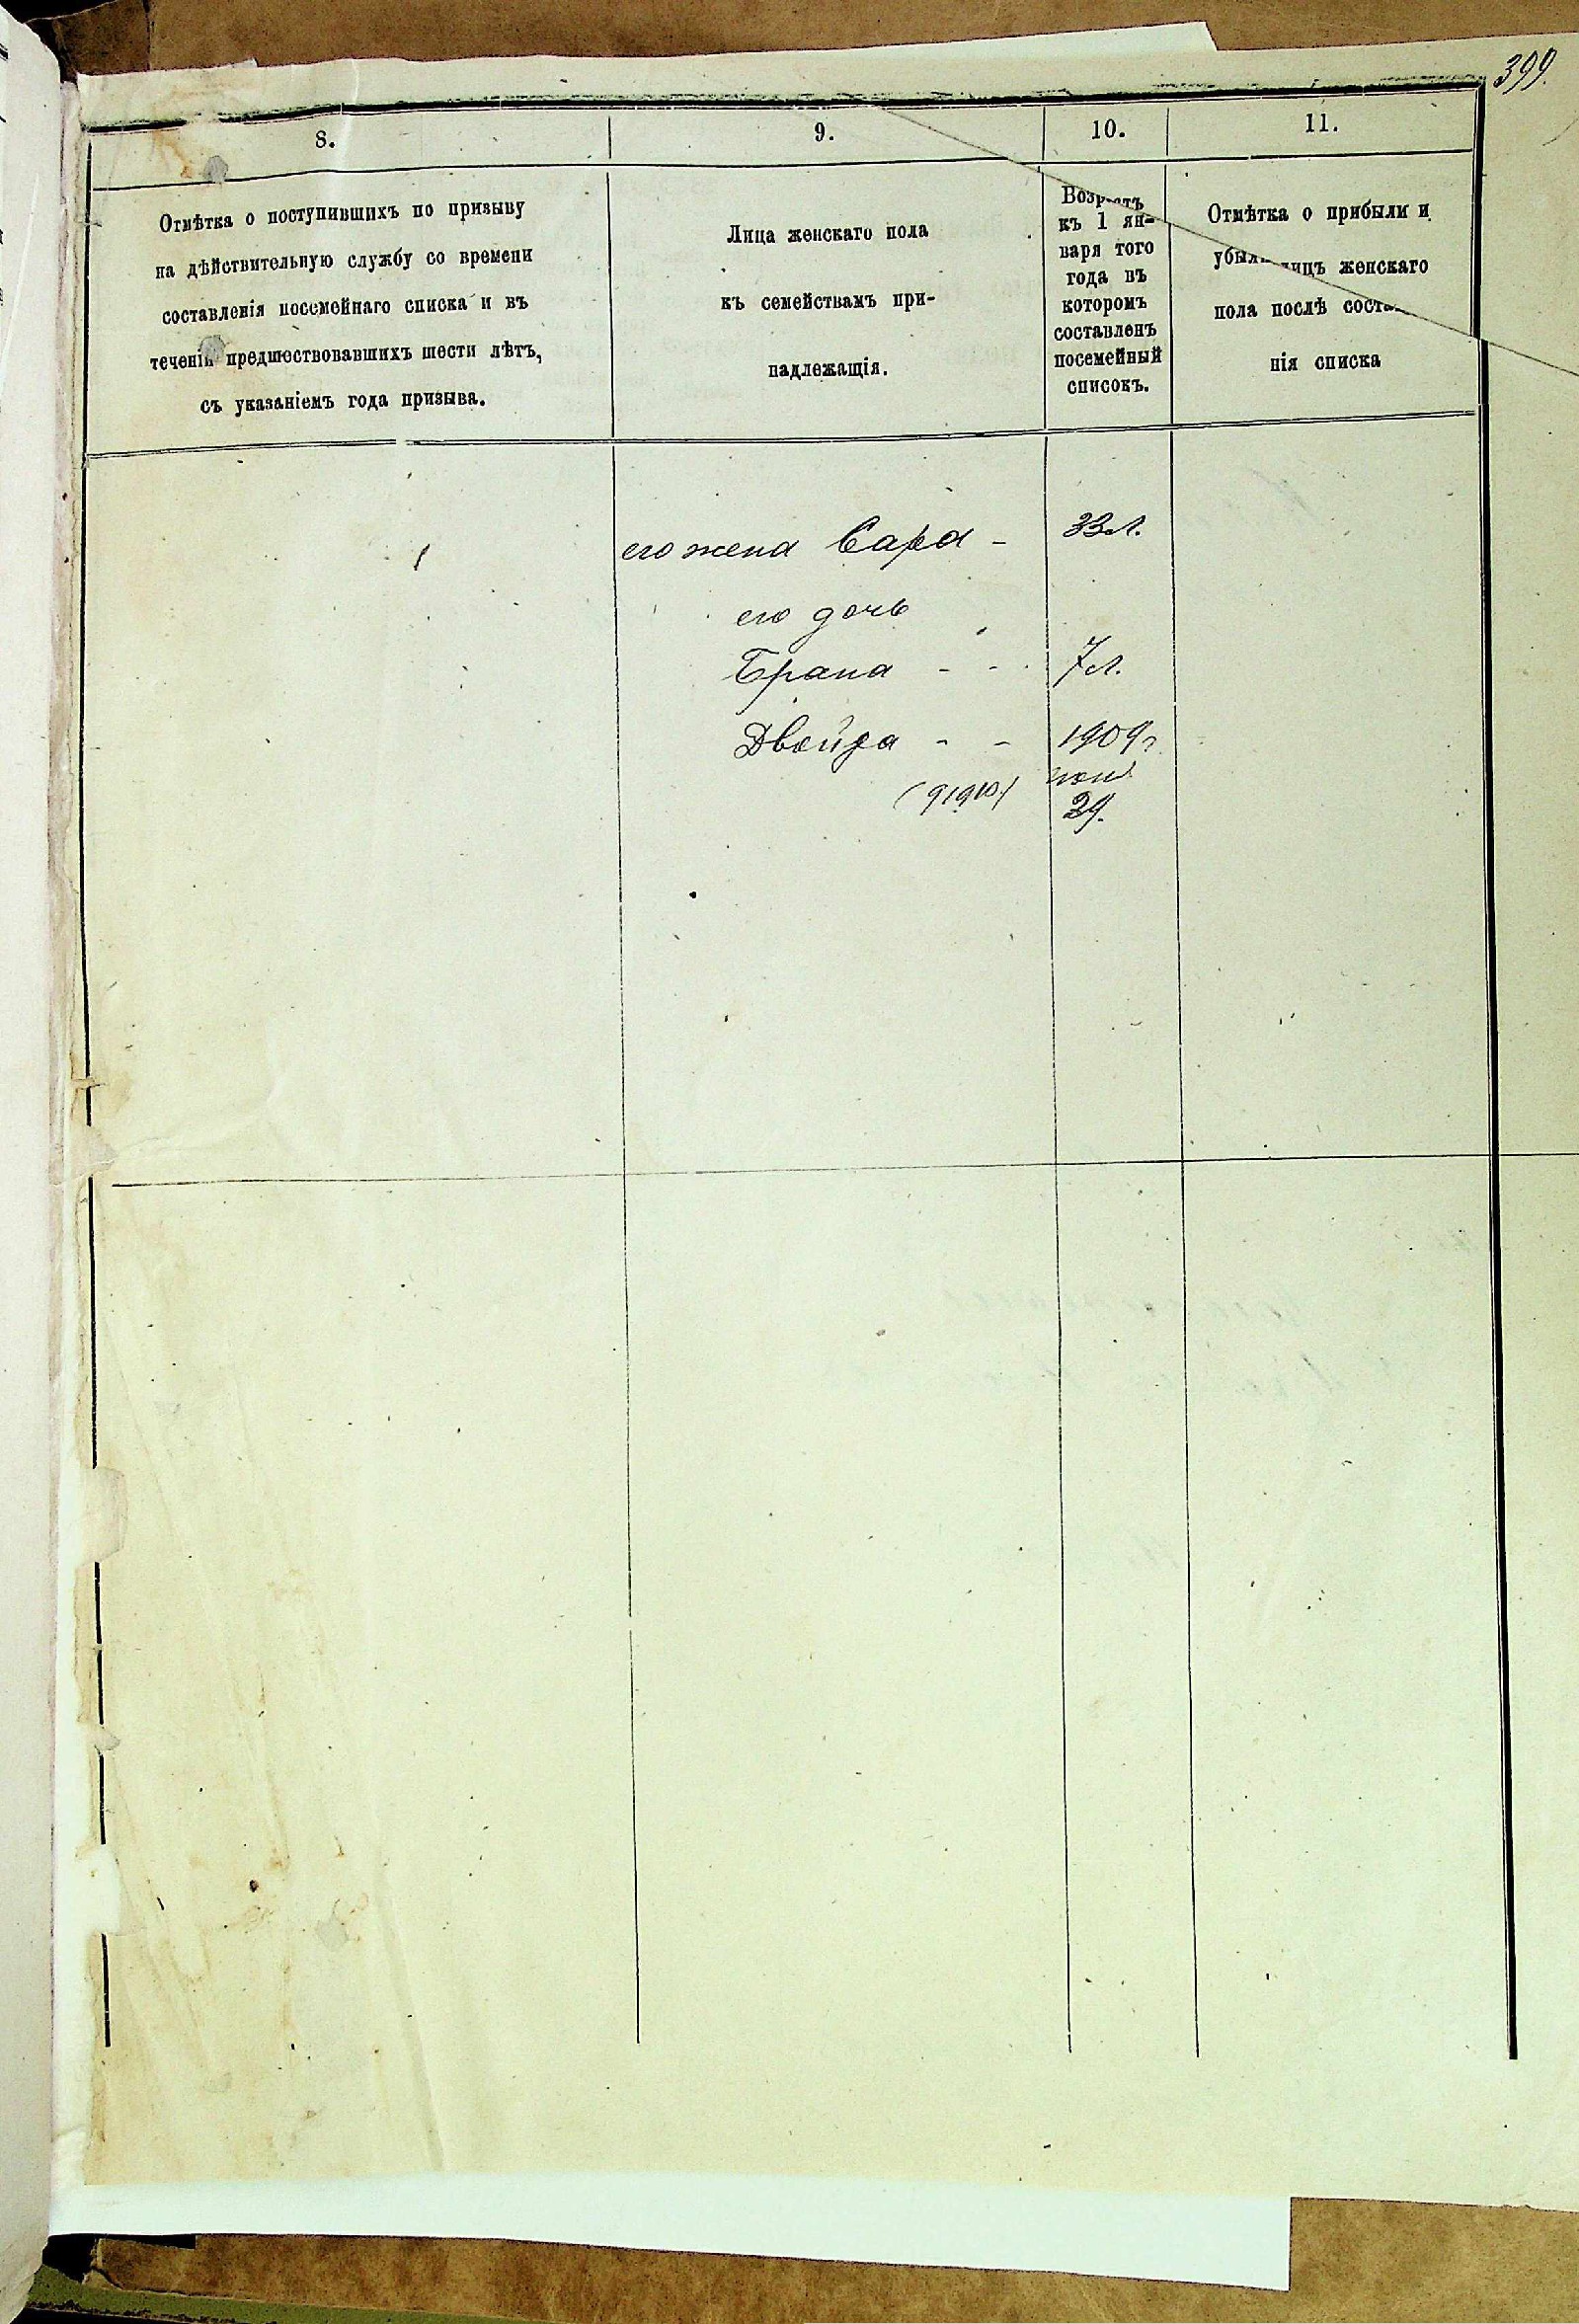 399.
8.
9.
10.
11.
Отмѣтка о поступившихъ по призыву
на дѣйствительную службу со времени
составленія посемейнаго списка и въ
теченіи предшествовавшихъ шести лѣтъ,
съ указаніемъ года призыва.
Лица женскаго пола
къ семействамъ при-
надлежащія.
Возрастъ
къ 1 ян-
варя того
года въ
которомъ
составленъ
посемейный
списокъ.
Отмѣтка о прибыли и
убыли лицъ женскаго
пола послѣ соста
нія списка
его жена Сара - 33 л.
его дочь
Брана - - 7 л.
Двойра - - 1909 г
29.